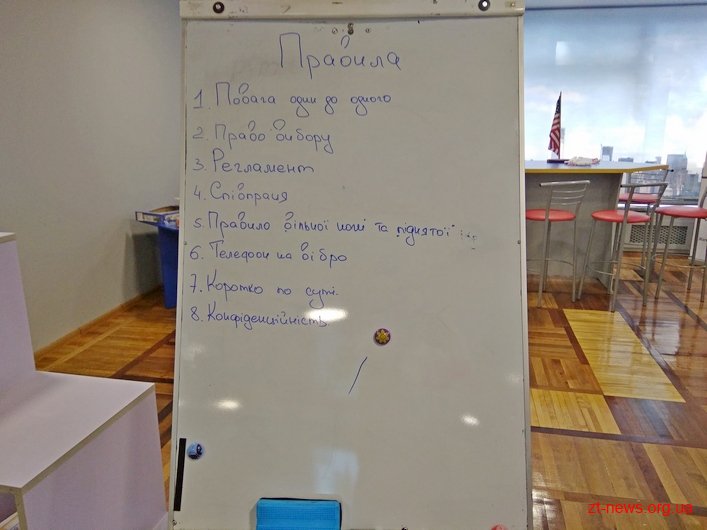 Правила
1. Повага один до одного
2. Право вибору
3. Регламент
4. Співпраця
5. Правило вільної ноги та піднятої
6. Телефон на вібро
7. Коротко по суті
8. Конфіденційність
zt-news.org.ua